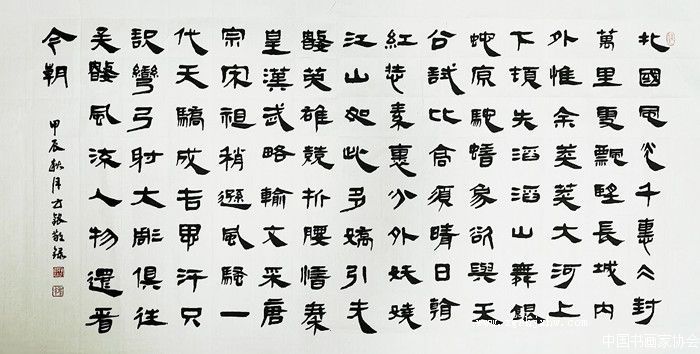 北國風光千裏冰封
萬里雪飄望長城內
外惟余莽莽大河上
下頓失滔滔山舞銀
蛇原馳蜡象欲與天
公試比高須晴日看
紅裝素裹分外妖嬈
江山如此多嬌引无
數英雄競折腰惜秦
皇漢武略輸文采唐
宗宋祖稍遜風騷一
代天驕成吉思汗只
識彎弓射大彫俱往
矣數風流人物還看
今朝
甲辰秋月方銀敬錄
中国书画家协会